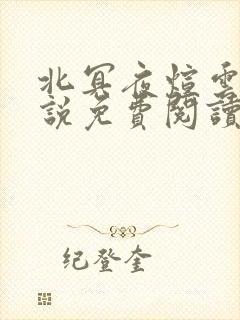 北冥夜煊雲
說免費閱讀
纪登奎